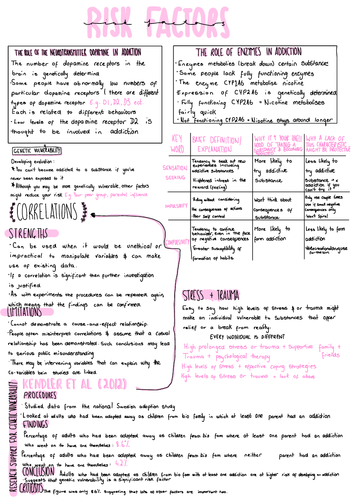 RISK FACTORS
THE ROLE OF THE NEUROTRANSMITTER DOPAMINE IN ADDICTION
The number of dopamine receptors in the
brain is genetically determine
Some people have abnormally low numbers of
particular dopamine receptors. There are different
types of dopamine receptor E.g. D1, D2, D3 ect
Each is related to different behaviours
Low levels of the dopamine receptor D2 is
thought to be involved in addiction
THE ROLE OF ENZYMES IN ADDICTION
Enzymes metabolise (break down) certain substance
Some people lack fully functioning enzymes
The enzyme CYP2A6 metabolise nicotine
Expression of CYP2A6 is genetically determined
Fully functioning CYP2A6 = Nicotine metabolises
fairly quick
Not functioning CYP2A6 = Nicotine stays around longer
GENETIC VULNERABILITY
Developing addiction:
You can't become addicted to a substance if you've
never been exposed to it
Although you may be more genetically vulnerable, other factors
might reduce your risk. E.g. Your peer group, parental influence
KEY WORD
BRIEF DEFINITION/ EXPLANATION
SENSATION SEEKING
Tendency to seek out new
experiences including
addictive substances.
Heightened interest in the
reward (feeling)
More likely to
try addictive
substance.
Less likely to
try addictive
IMPULSIVITY
Acting without considering
the consequences of actions
Poor self control
Won't think about
consequences of
substance
COMPULSIVITY
Tendency to continue
behaviour, even in the face
of negative consequences
Greater susceptibility of
formation of habits
More likely to
form addiction
Less likely to form
addiction
CORRELATIONS
STRENGTHS
Can be used when it would be unethical or
impractical to manipulate variables & can make
use of existing data.
If a correlation is significant then further investigation
is justified.
As with experiments the procedures can be repeated again,
which means that the findings can be confirmed
LIMITATIONS
Cannot demonstrate a cause-and-effect relationship.
People often misinterpret correlations & assume that a causal
relationship has been demonstrated. Such conclusions may lead
to serious public misunderstanding
There may be intervening variables that can explain why the
co-variables being studied are linked
STRESS + TRAUMA
Easy to say how high levels of stress & or trauma might
make an individual vulnerable to substances that offer
relief or a break from reality.
EVERY INDIVIDUAL IS DIFFERENT
High prolonged stress or trauma + Supportive family + friends
Trauma + psychological therapy
High levels of stress + effective coping strategies
High levels of stress or trauma + lack of above
RESEARCH SUPPORT FOR GENETIC VULNERABILITY
KENDLER ET AL (2012)
PROCEDURES
Studied data from the national Swedish adoption study
Looked at adults who had been adopted away as children from bio family in which at least one parent had an addiction
FINDINGS
Percentage of adults who had been adopted away as children from bio fam where at least one parent had an addiction
who went on to have one themselves: 8.6%
Percentage of adults who had been adopted away as children from bio fam where neither parent had an addiction
who went on to have one themselves: 4.2%
CONCLUSION
Adults who had been adopted as children from bio fam with at least one addiction are at higher risk of developing an addiction
Suggests that genetic vulnerability is a significant risk factor
CRITICISMS
The figure was only 8.6%. Suggesting that lots of other factors are important too.